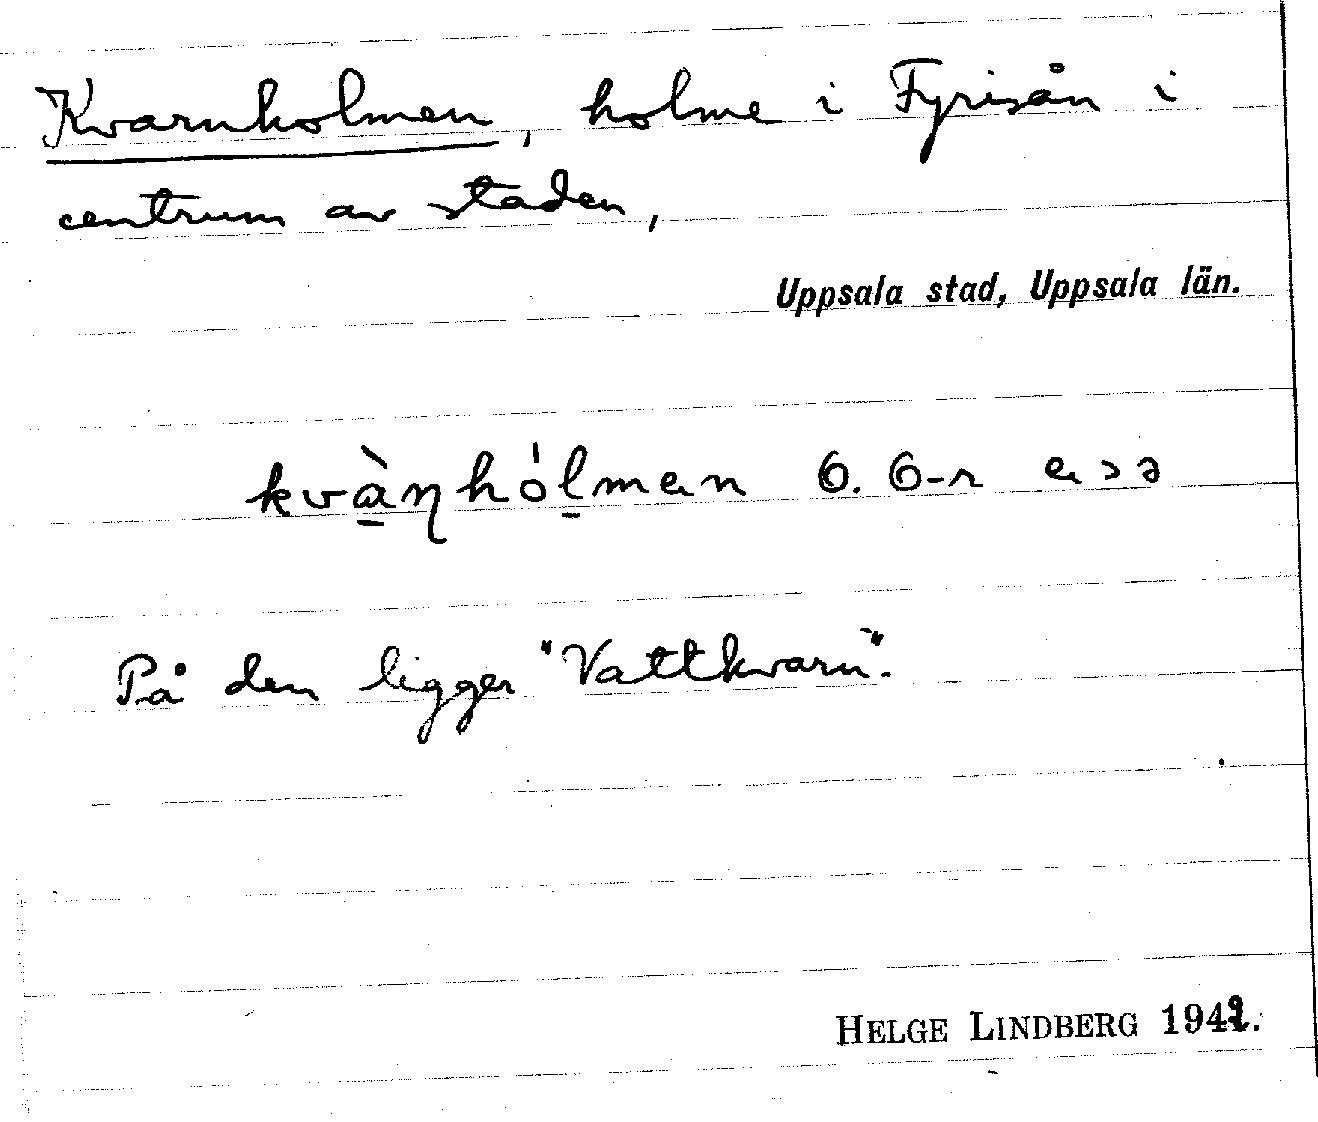 Kvarnholmen, holme i Fyrisån i
centrum av staden,
Uppsala stad, Uppsala län.
På den ligger "Vattkvarn".
HELGE LINDBERG